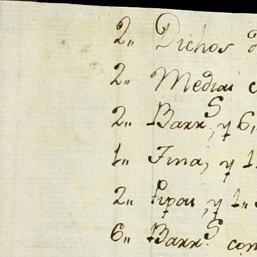 2,, Dichos
2,, Medias c
2,, Barr.S y 6,
1,, Tina, y 1
2,, Pipas, y 1,,
6,, Barr.S con